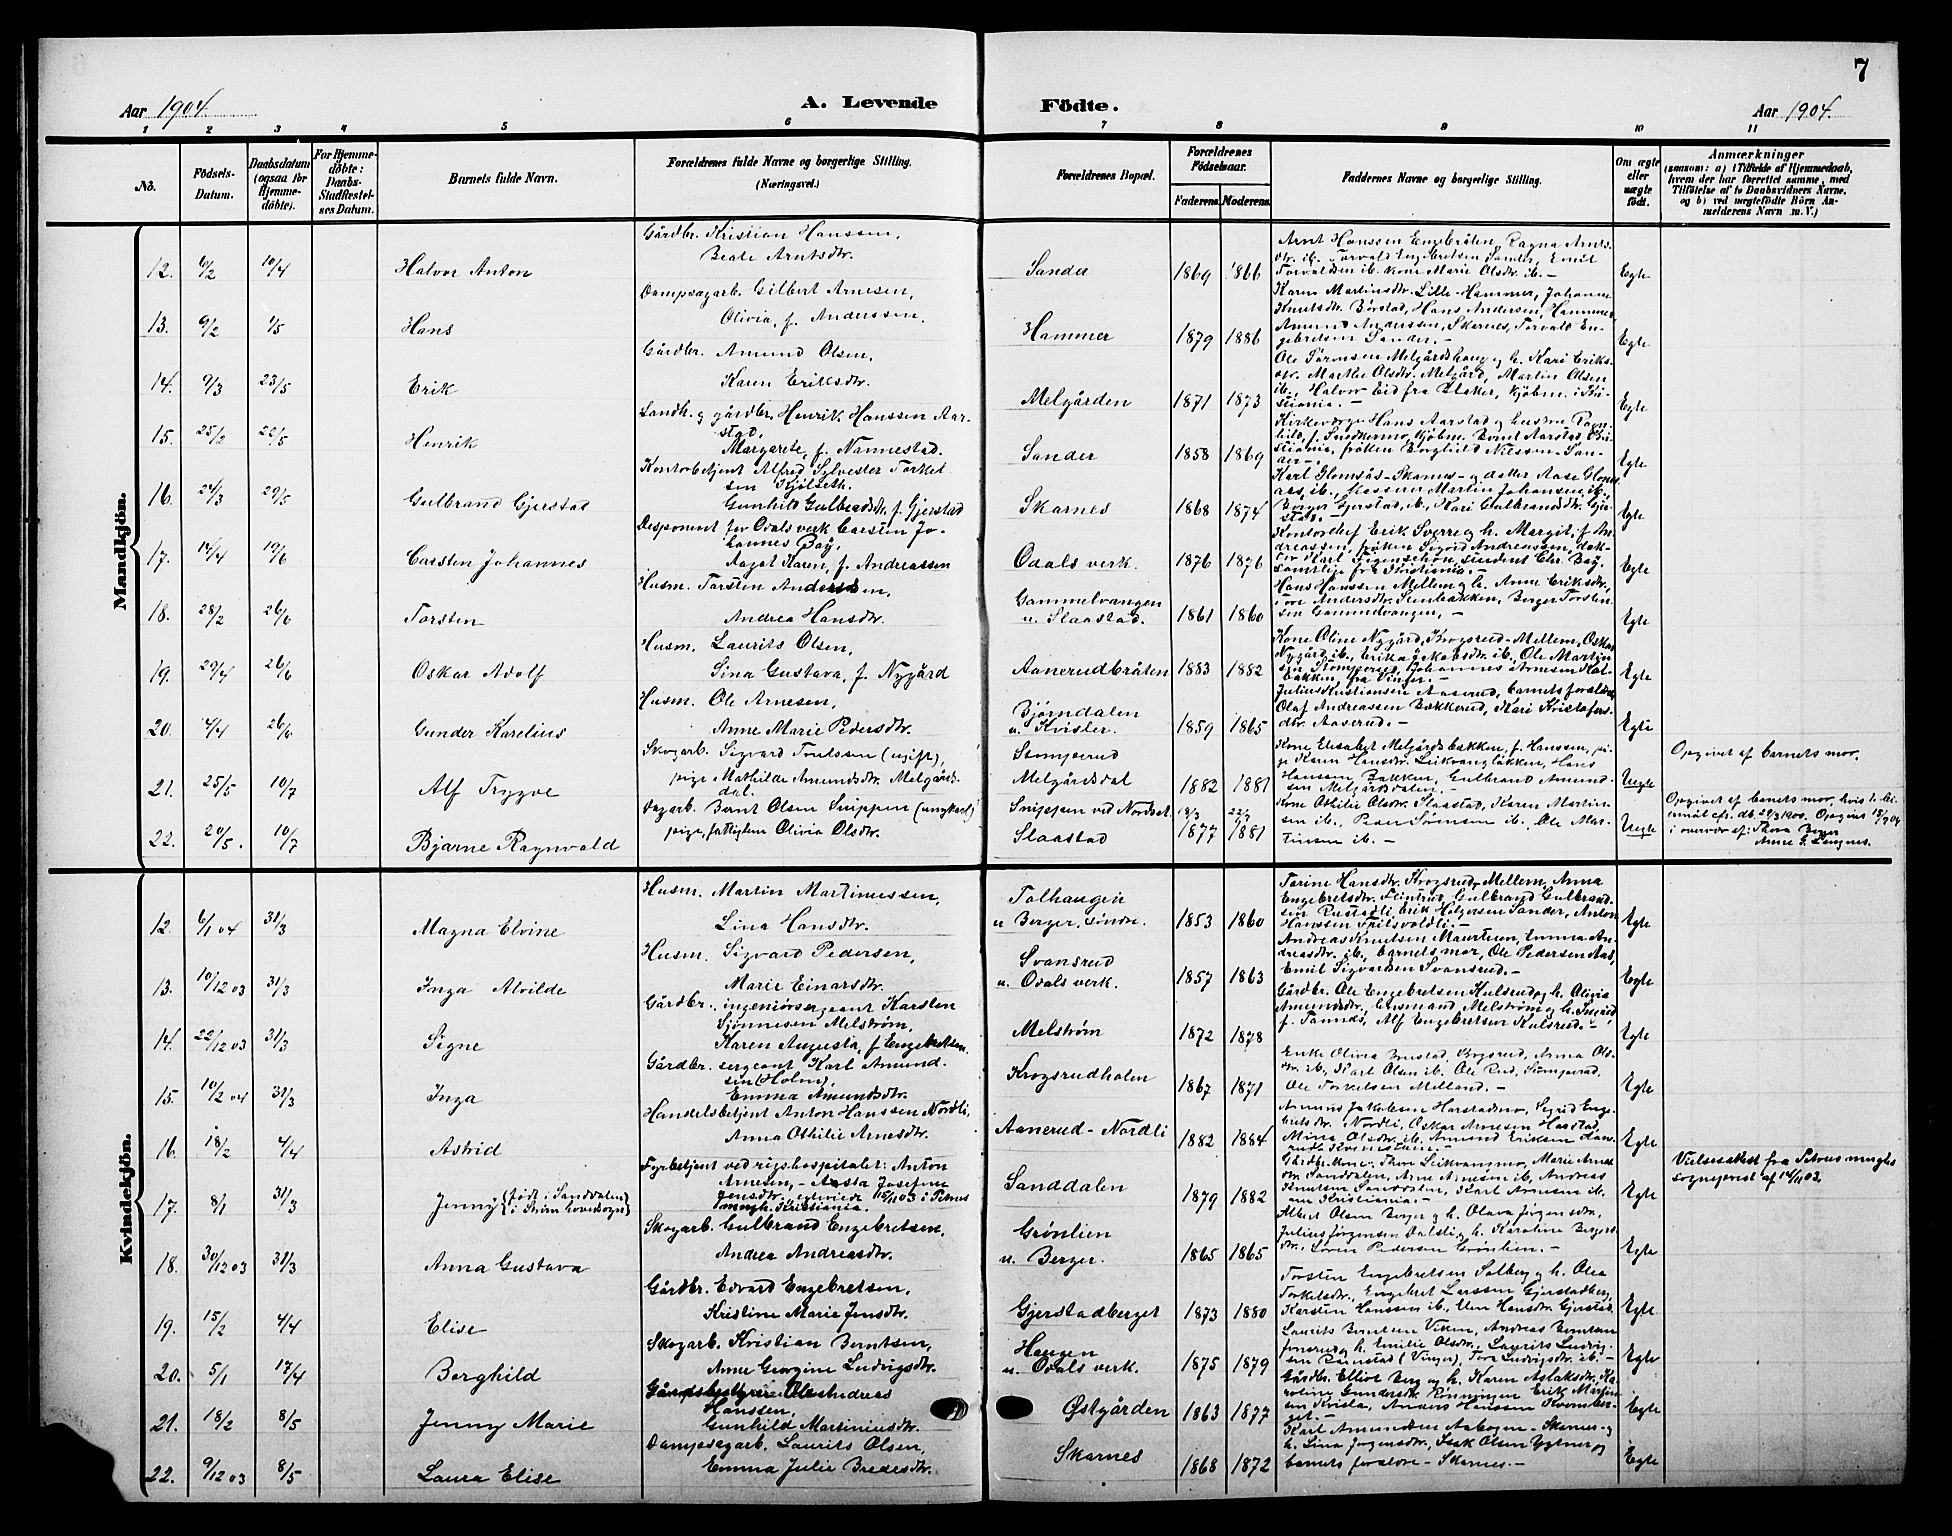 7
Aar 1904.
A. Levende Födte.
Aar 1904.
1 2 3 4 5 6 7 8 9 10 11
No.
Födsels-Datum.
Daabsdatum (ogsaa for Hjemmedöbte).
For Hjemmedöbte: Daabs-Stadfæstelses Datum.
Barnets fulde Navn.
Forældrenes fulde Navne og borgerlige Stilling. (Næringsvei.)
Forældrenes Bopæl.
Forældrenes Födselsaar.
Faderens. Moderens.
Faddernes Navne og borgerlige Stilling.
Om ægte eller uægte födt.
Anmærkninger
(saasom: a) i Tilfælde af Hjemmedaab, hvem der har forrettet samme, med Tilföielse af to Daabsvidners Navne, og b) ved uægtefödte Börn Anmelderens Navn m. V.)
Mandkjön.
12. 6/2 10/4 Halvor Anton
Gårdbr. Kristian Hanssen,
Beate Arntsdtr.
Sander 1869 1866
Arnt Hanssen Engebråten, Ragna Arnts-
dtr. ib. Torvald Engebretsen Sander, Emil
Torvaldsen ib. kone Marie Olsdtr. ib. -
Egte
13. 9/2 1/5 Hans
Dampsagarb. Gilbert Arnesen,
Olivia, f. Anderssen.
Hammer 1879 1886
Karen Martinsdtr. Lille-Hammer, Johanne
Knutsdtr. Börstad, Hans Andersen Hammer,
Amund Anderssen, Skarnes, Torvald En-
gebretsen Sander. -
Egte
14. 9/3 23/5 Erik
Gårdbr. Amund Olsen,
Karen Eriksdtr.
Melgården 1871 1873
Ole Sörensen Melgårdshaug og h. Kari Eriks-
dtr. Marthe Olsdtr. Melgård, Martin Olsen
ib., Halvor Eid fra Blaker, kjöbm. i Kri-
stiania. -
Egte
15. 25/2 22/5 Henrik
Landh. og gårdbr. Henrik Hanssen Aar-
stad,
Margarete, f. Nannestad.
Sander 1858 1869
Kirkeværge Hans Aarstad og hustru Ragn-
hild, f. Snekkermo, kjöbm. Bernt Aarstad, Kri-
stiania, fröken Borghild Nilssen-San-
der. -
Egte
16. 24/3 29/5 Gulbrand Gjerstad
Kontorbetjent Alfred Sylvester Torkel-
sen Kjölseth.
Gunhild Gulbrandsdtr. f. Gjerstad
Skarnes 1868 1874
Karl Glomsås-Skarnes- og datter Aase Glom-
aas, ib., Martin Johansen ib.,
Berger Gjerstad, ib., Kari Gulbrandsdtr. Gjer-
stad. -
Egte
17. 14/4 19/6 Carsten Johannes
Disponent for Odals verk Carsten Jo-
hannes Böÿ,
Aagot Karen, f. Andreassen
Odals verk. 1876 1876
Kontorchef Erik Sverre og h. Margit, f. An-
dreassen, fröken Sigrid Andreassen, dok-
tor Karl student Chr. Böÿ.
samtlige fra Kristiania. -
Egte
18. 28/2 26/6 Torsten
Husm. Torsten Anderssen,
Andrea Hansdtr.
Gammelvangen
u. Slaastad. 1861 1860
Hans Hanssen Mellem og h. Anne Eriksdtr.,
Tore Andersdtr. Stenbakken, Berger Torsten-
sen Gammelvangen, -
Egte
19. 29/4 26/6 Oskar Adolf
Husm. Laurits Olsen,
Sina Gustava, f. Nygård
Aanerudbråten 1883 1882
Kone Oline Nygård, Krogsrud-Mellem, Oskar
Nygård ib., Erika Jakobsdtr. ib. Ole Martin-
sen Stomperud, Johannes Arnesen Kol-
bakken, fra Vinger. -
Egte
20. 4/4 26/6 Gunder Karelius
Husm. Ole Arnesen,
Anne Marie Pedersdtr.
Bjørndalen
u. Kvisler. 1859 1865
Julius Kristiansen Aaserud, barnets forældre,
Olaf Andreassen Bækkerud, Kari Kristofers-
dtr. Aaserud. -
Egte
21. 25/5 10/7 Alf Trygve
Skogarb. Sigvard Trulssen (ugift),
pige Mathilde Amundsdtr. Melgårds-
dal.
Stomperud
Melgårdsdal 1882 1881
Kone Elisabet Melgårdsbakken, f. Hanssen, pi-
ge Karen Hansdtr. Leikvangbakken, Hans
Hanssen Bakken, Gulbrand Amund-
sen Melgårdsdalen. -
Uegte
Opgivet af barnets mor.
22. 20/5. 10/7 Bjarne Ragnvald
Dagarb. Bernt Olsen Snippen (ungkarl)
pige, fattiglem Olivia Olsdtr.
Snippen ved Nordset.
Slaastad 18/3 1877 22/7 1881
Kone Othilie Olsdtr. Slaastad, Karen Martin-
sen ib., Peder Sörensen ib., Ole Mar-
tinsen ib. -
Uegte
Opgivet af barnets mor, hvis 1. lei-
ermål efr. db. 29/3 1900. Opgivet 10/7 04
i overvær af: Thora Berger
Anne G. Langnes.
Kvindekjön.
12. 6/1 04 31/3 Magna Elvine
Husm. Martin Martinussen,
Lina Hansdtr.
Tolhaugen
u. Berger, søndre. 1853 1860
Tarine Hansdtr. Krogsrud-Mellem, Anna
Engebretsdtr. Flintrud, Gulbrand Gulbrand-
sen Rustadli, Erik Holgersen Sander, Anton
Hanssen Fritsvoldli. -
Egte
13. 10/12 03 31/3 Inga Alvilde
Husm. Sigvard Pedersen,
Marie Einarsdtr.
Svansrud
u. Odals verk. 1857 1863
Andreas Knutsen Maurtuen, Emma An-
dreasdtr. ib., barnets mor, Ole Pedersen Aas,
Emil Sigvardsen Svansrud. -
Egte
14. 22/12 03 31/3 Signe
Gårdbr. ingeniörsergeant Karsten
Sjönnesen Melstrøm,
Karen Augusta, f. Engebretsen.
Melstrøm 1872 1878
Gårdbr. Ole Engebretsen Kulsrud og h. Olivia
Amundsdtr., Melstrøm og h. Sigrid,
f. Tannæs, Alf Engebretsen Kulsrud. -
Egte
15. 10/2 04 31/3 Inga
Gårdbr. sergeant Karl Amund-
sen (Holm),
Emma Amundsdtr.
Krogsrudholen 1867 1871
Enke Olivia Krogsrud, Anna Ols-
dtr. ib., Karl Olsen ib. Ole Rud, Stomperud,
Ole Torkelsen Melland. -
Egte
16. 18/2 4/4 Astrid
Handelsbetjent Anton Hanssen Nordli,
Anna Othilie Arnesdtr.
Aanerud-Nordli 1882 1884
Amund Jakobsen Harstadmo, Sigrid Enge-
bretsdtr. Nordli, Oskar Arnesen Harstad,
Mina Olsdtr. ib. Amund Eriksen
Egte
17. 8/1 31/3 Jenny (født i Sanddalen i Ström hovedsogn)
Fyrbetjent ved rigshospitalet: Anton
Arnesen, - Aasta Josefine
Jensdtr., egteviede 15/11 03 i Petrus
menigh. Kristiania.
Sanddalen 1879 1882
Gårdbr.kone Thora Leikvammo, Marie Arnes-
dtr. Sanddalen, Arne Arnesen ib. Andreas
Knutsen Sanddalen, Karl Arnesen ib.
Kristiania. -
Egte
Vielsesattest fra Petrus menighs
sogneprest af 14/11 03.
18. 30/12 03 31/3 Anna Gustava
Skogarb. Gulbrand Engebretsen,
Andrea Andreasdtr.
Grønlien
u. Berger. 1865 1865
Albert Olsen Berger og h. Olava Jörgensdtr.,
Julius Jörgensen Dalsli og h. Karoline Bergers-
dtr. Sören Pedersen Grönlien. -
Egte
19. 15/2 4/4 Elise
Gårdbr. Edvard Engebretsen,
Kristine Marie Jensdtr.
Gjerstadberget 1873 1880
Torsten Engebretsen Solberg og h. Olea
Torkelsdtr., Engebret Larssen Gjerstadberg,
Karsten Hanssen ib., Elen Hansdtr. Gjerstad.
Egte
20. 5/1 17/4 Borghild
Skogarb. Kristian Berntsen,
Anne Georgine Ludvigsdtr.
Haugen
u. Odals verk. 1875 1879
Laurits Berntsen Viken, Andreas Berntsen
og h. Emilie Olsdtr. Laurits Ludvig-
sen Ramstad (Vinger), Tora Ludvigsdtr. ib. -
Egte
21. 18/2 8/5 Jenny Marie
Gårdsbestyrer Ole Andreas
Hanssen,
Gunhild Martiniusdtr.
Østgården 1863 1877
Gårdbr. Elliot Berg og h. Karen Aslaksdtr. Ka-
roline Gundersdtr. Rönningen Erik Martin-
sen Krisla, Anders Hanssen Kvernber-
get. -
Egte
22. 9/12 03 8/5 Laura Elise
Dampsagarb. Laurits Olsen,
Emma Julie Bredesdtr.
Skarnes 1868 1872
Karl Amundsen Aabogen-Skarnes og
h. Lina Jörgensdtr., Isak Olsen Ygtner og
barnets forældre - Skarnes. -
Egte